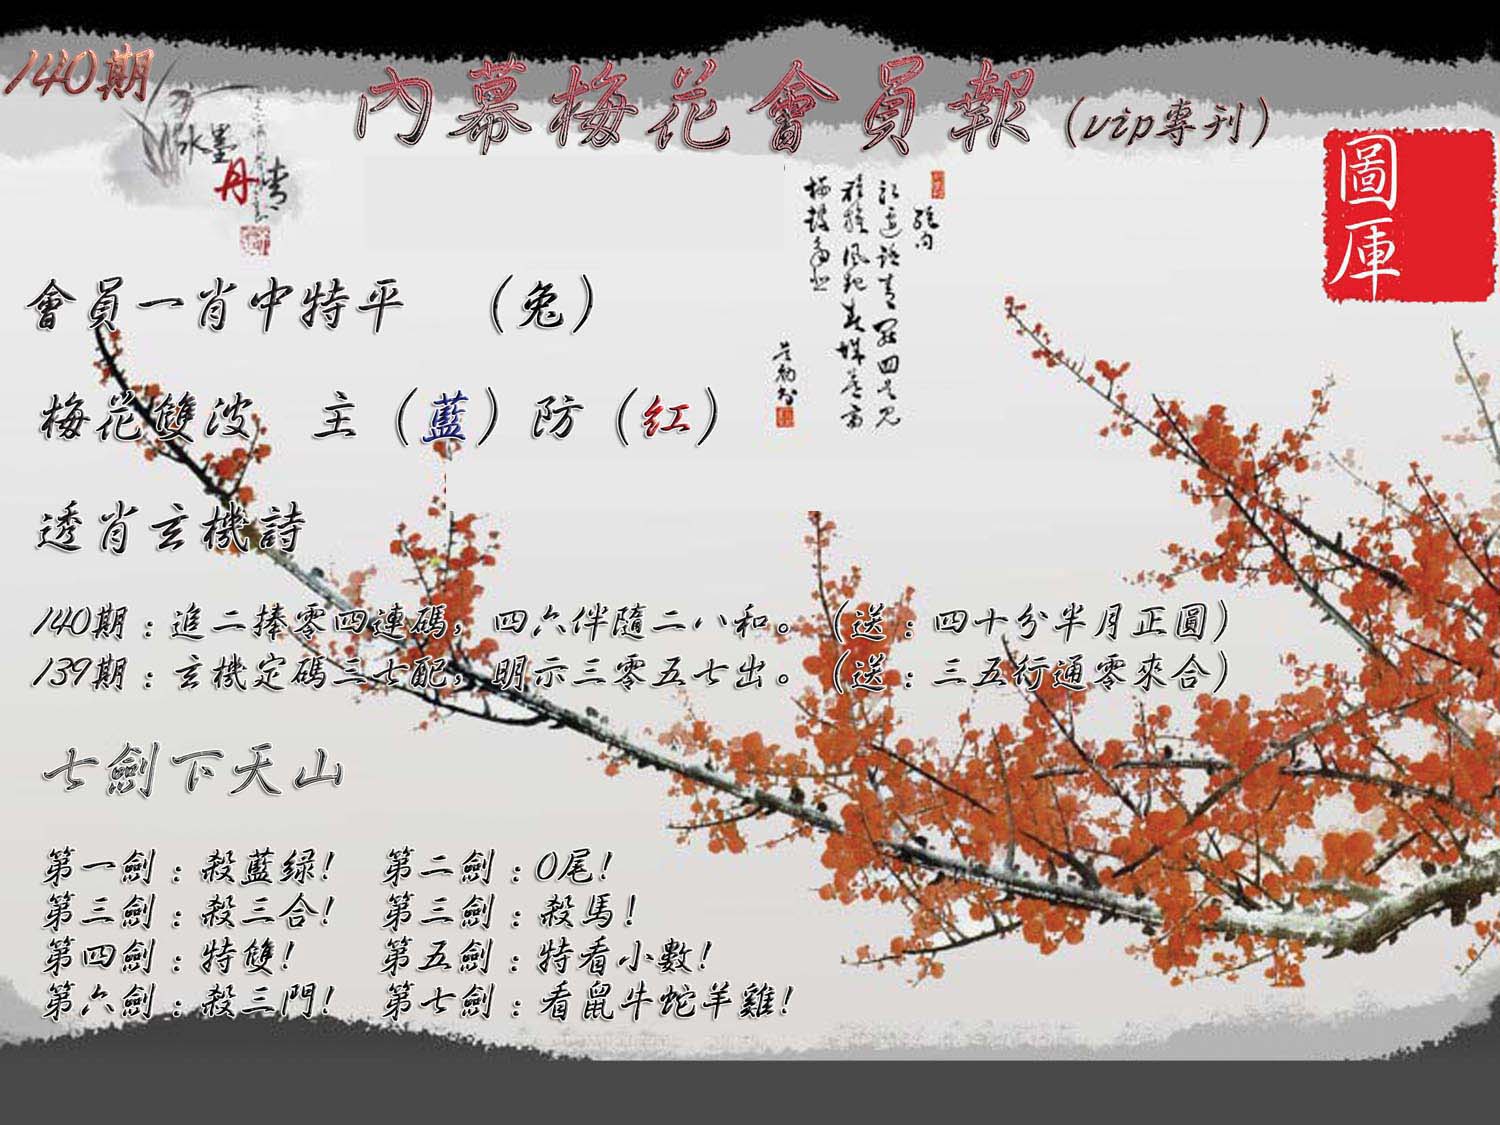 140期
內幕梅花會員報（vip專刊）
水墨
丹青
圖庫
會員一肖中特平　（兔）
梅花雙波　主（藍）防（紅）
透肖玄機詩
140期：進二捧零四連碼，四六伴隨二八和。（送：四十分半月正圓）
139期：玄機定碼三七配，明示三零五七出。（送：三五行通零來合）
七劍下天山
第一劍：殺藍綠！　第二劍：0尾！
第三劍：殺三合！　第三劍：殺馬！
第四劍：特雙！　第五劍：特看小數！
第六劍：殺三門！　第七劍：看鼠牛蛇羊雞！